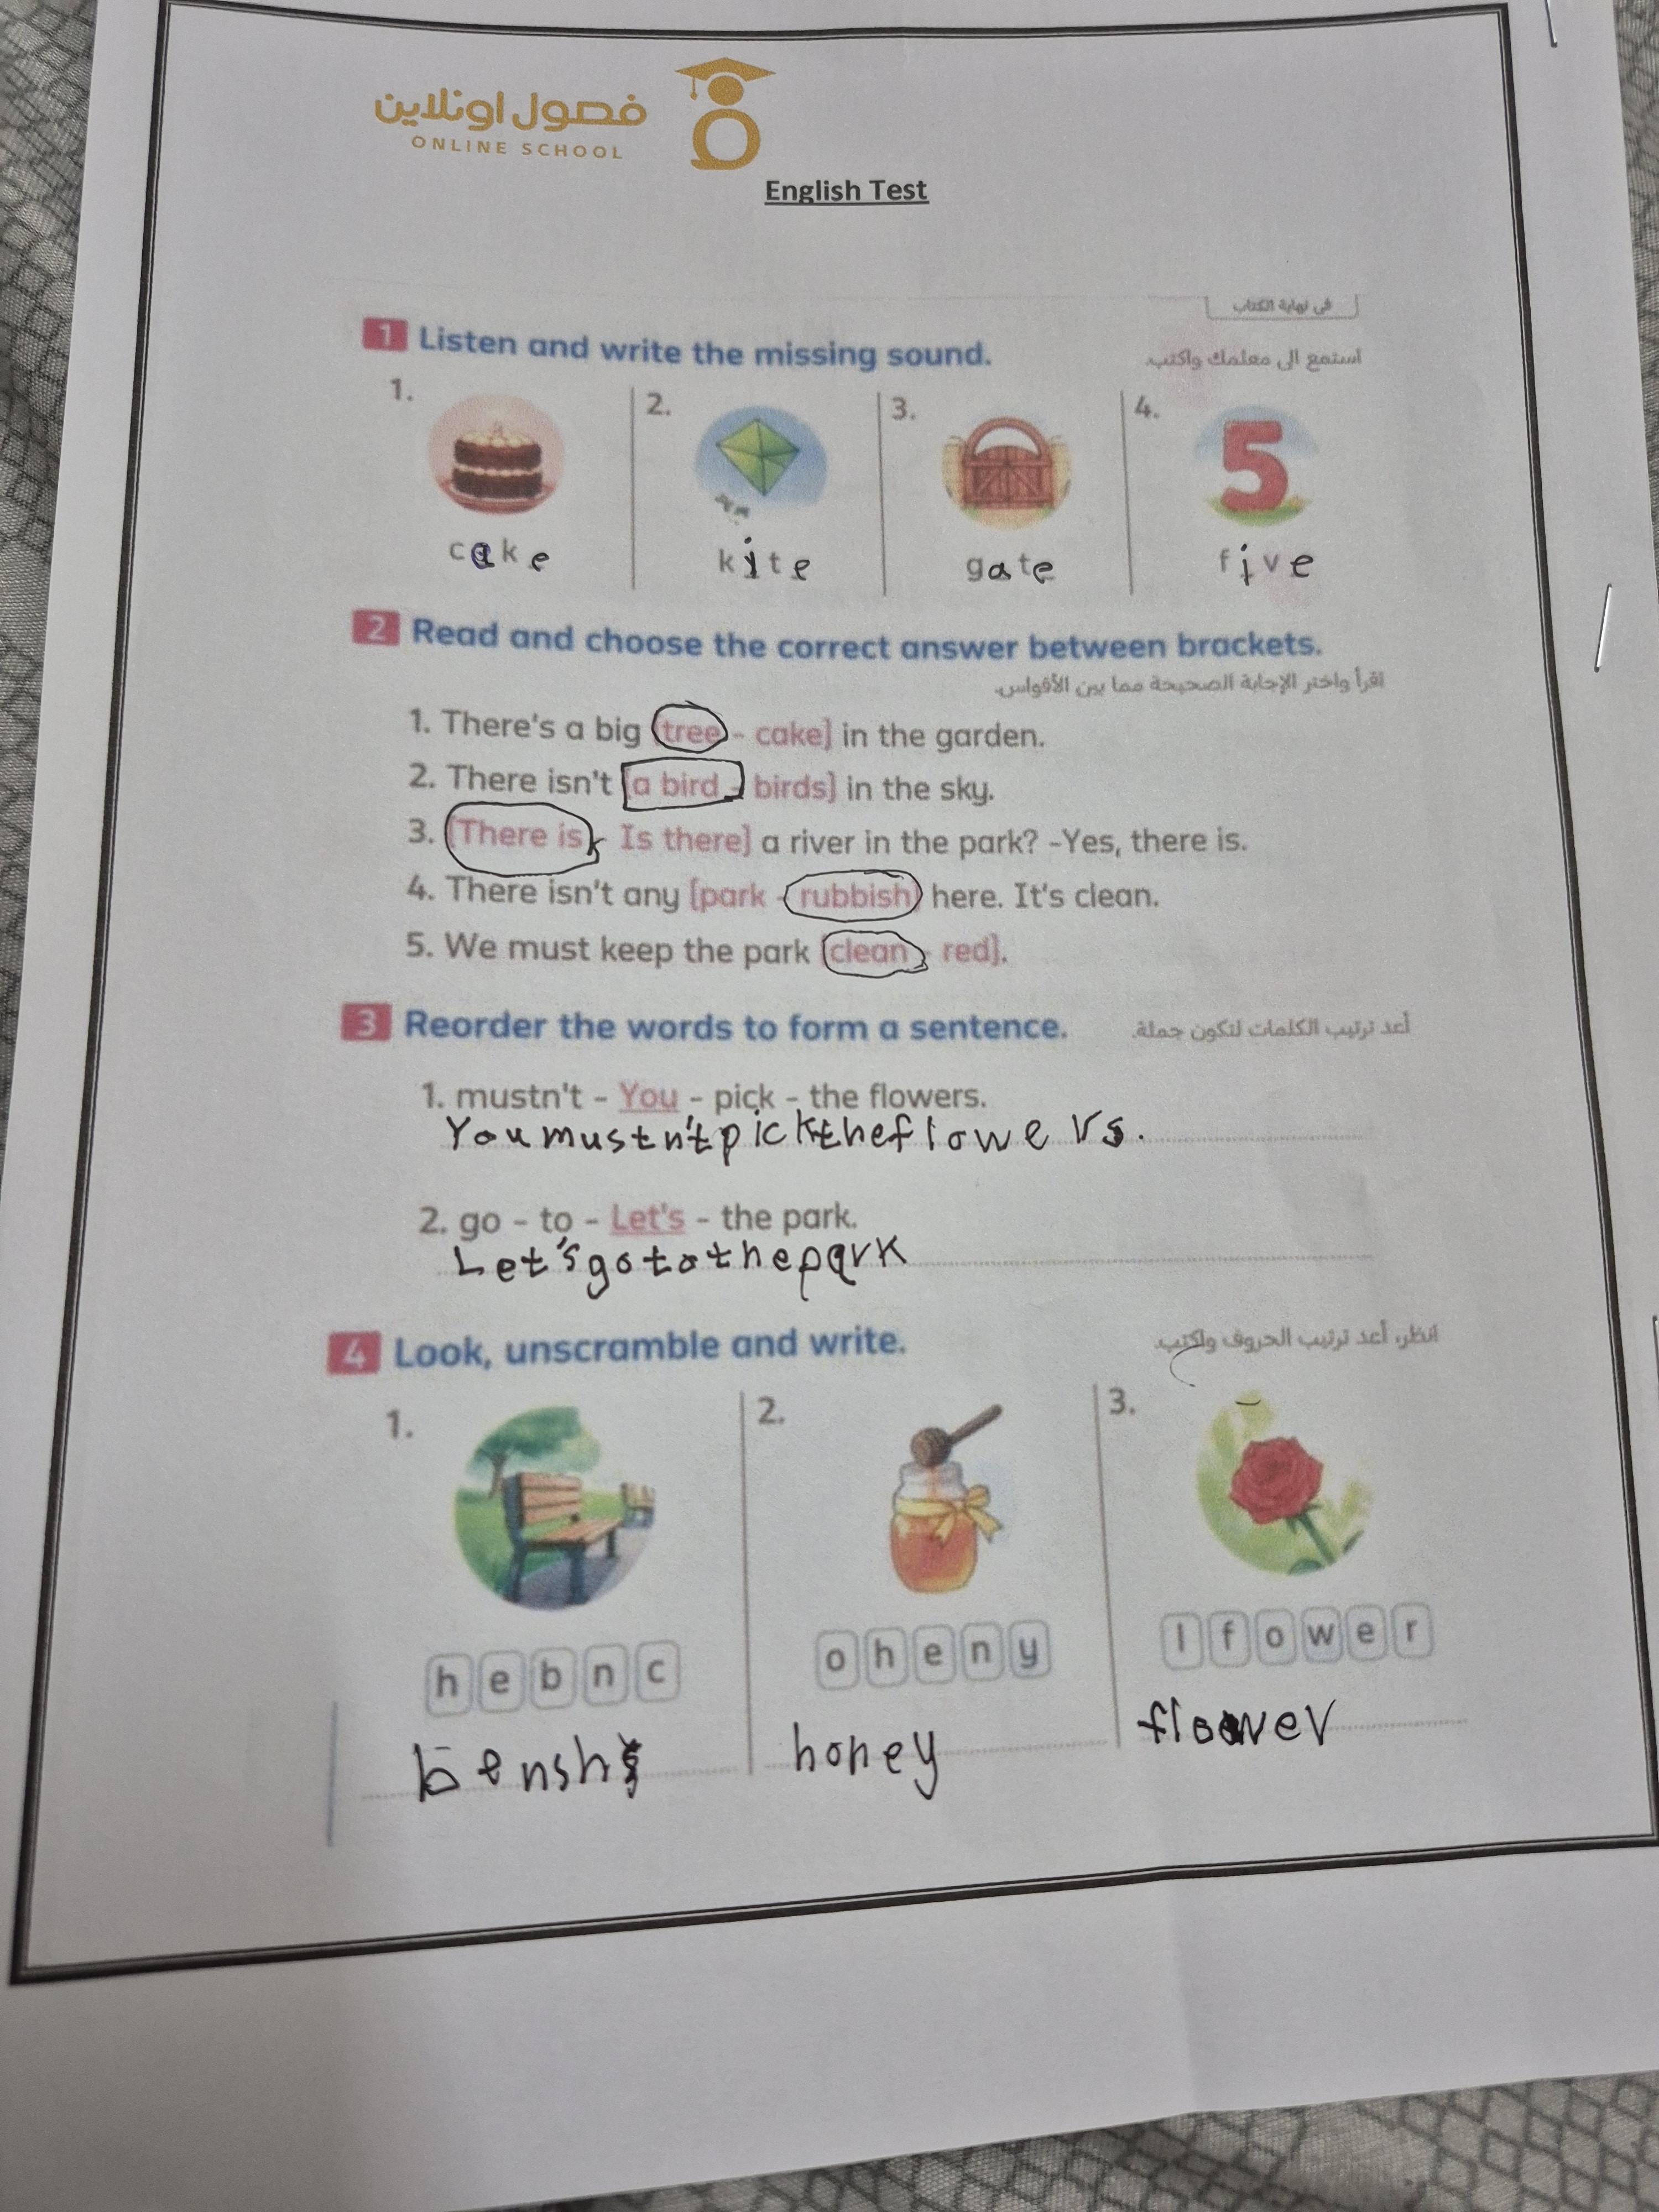 فصول اونلاين
ONLINE SCHOOL
English Test
في نهاية الكتاب
1 Listen and write the missing sound.
استمع الى معلمك واكتب.
1. 2. 3. 4.
5
cake kite gate five
2 Read and choose the correct answer between brackets.
اقرأ واختر الإجابة الصحيحة مما بين الأقواس.
1. There's a big [tree - cake] in the garden.
2. There isn't [a bird - birds] in the sky.
3. [There is - Is there] a river in the park? -Yes, there is.
4. There isn't any [park - rubbish] here. It's clean.
5. We must keep the park [clean - red].
3 Reorder the words to form a sentence.
أعد ترتيب الكلمات لتكون جملة.
1. mustn't - You - pick - the flowers.
You mustn't pick the flowers.
2. go - to - Let's - the park.
Let's go to the park
4 Look, unscramble and write.
انظر، أعد ترتيب الحروف واكتب.
1. 2. 3.
h e b n c o h e n y l f o w e r
bensh honey flower